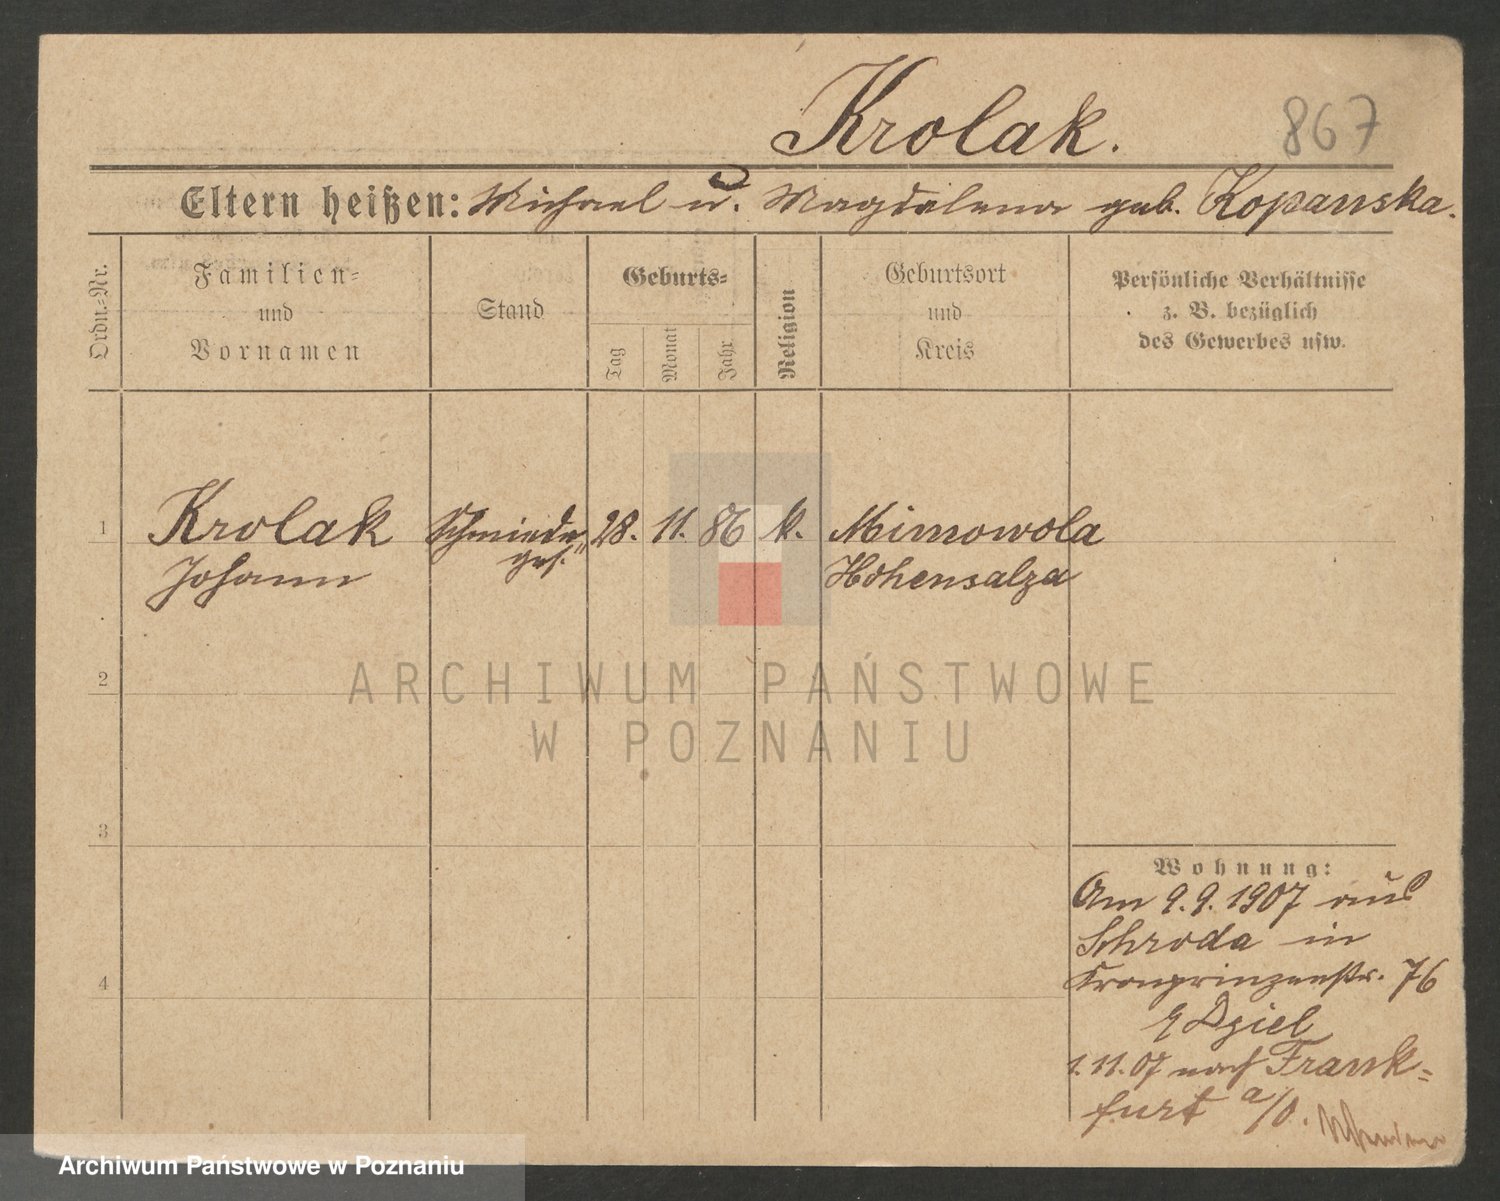 Krolak. 867
Eltern heißen: Michael u. Magdalena geb. Kopanska.
Ordn.-Nr.
Familien-
und
Vornamen
Stand
Geburts-
Tag
Monat
Jahr
Religion
Geburtsort
und
Kreis
Persönliche Verhältnisse
z. B. bezüglich
des Gewerbes usw.
1 Krolak Schmiede 28. 11. 86 k. Mimowola
Johann ges. Hohensalza
ARCHIWUM PAŃSTWOWE
W POZNANIU
2
3
4
Wohnung:
Am 9.9.1907 aus
Schroda in
Kronprinzenstr. 76
Dziel
1.11.07 nach Frank-
furt a/O.
Archiwum Państwowe w Poznaniu